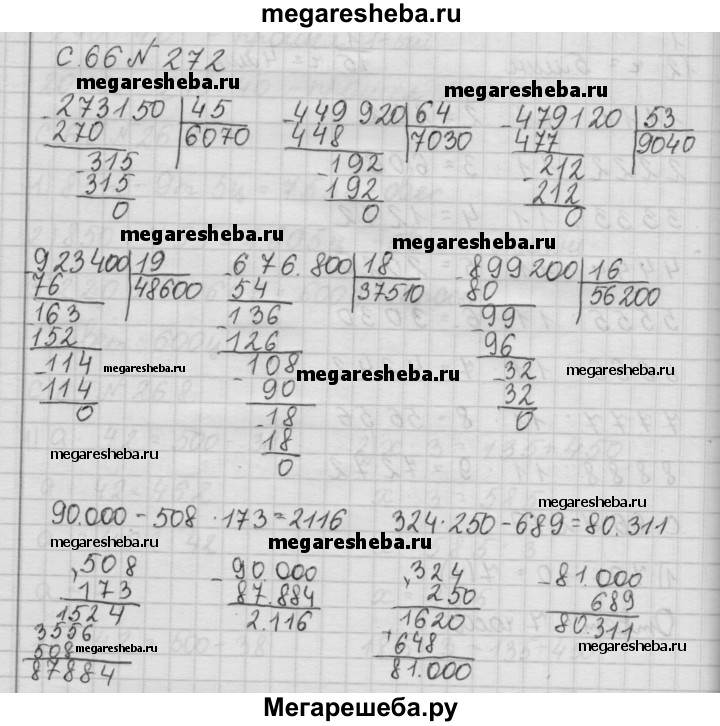 megaresheba.ru
С. 66 № 272
megaresheba.ru megaresheba.ru megaresheba.ru
- 273150 | 45 - 449 920 | 64 - 479120 | 53
270 6070 448 7030 477 9040
- 315 - 192 - 212
315 192 212
0 0 0
megaresheba.ru megaresheba.ru
- 923400 | 19 - 676.800 | 18 - 899200 | 16
76 48600 54 37510 80 56200
163 - 136 - 99
152 126 96
- 114 megaresheba.ru - 108 megaresheba.ru - 32 megaresheba.ru
114 90 32
0 - 18 0
18
0
megaresheba.ru megaresheba.ru
megaresheba.ru
90.000 - 508 · 173 = 2116 324 · 250 - 689 = 80.311
megaresheba.ru megaresheba.ru
508 - 90.000 324 - 81.000
173 87.884 250 689
1524 2.116 1620 80.311
3556 + 648
508 81.000
87884
megaresheba.ru megaresheba.ru megaresheba.ru
Мегарешеба.ру